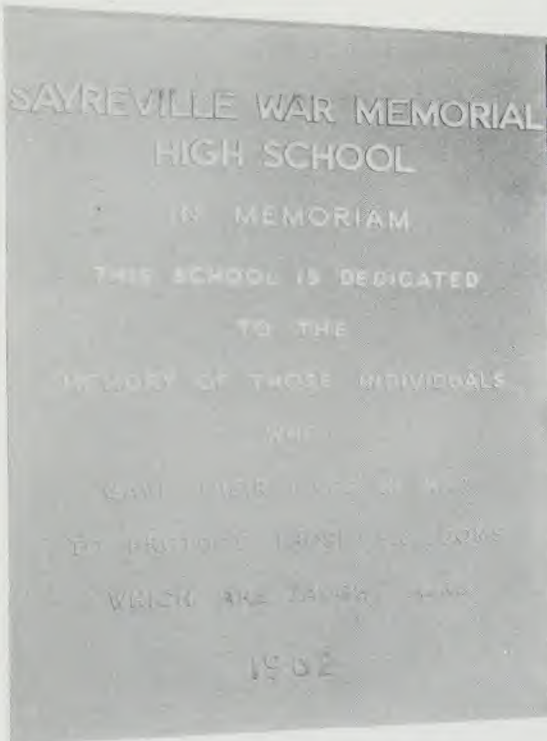 SAYREVILLE WAR MEMORIAL
HIGH SCHOOL
IN MEMORIAM
THIS SCHOOL IS DEDICATED
TO THE
MEMORY OF THOSE INDIVIDUALS
WHO
GAVE THEIR LIVES IN WAR
TO PROTECT THOSE FREEDOMS
WHICH ARE TAUGHT HERE
1962